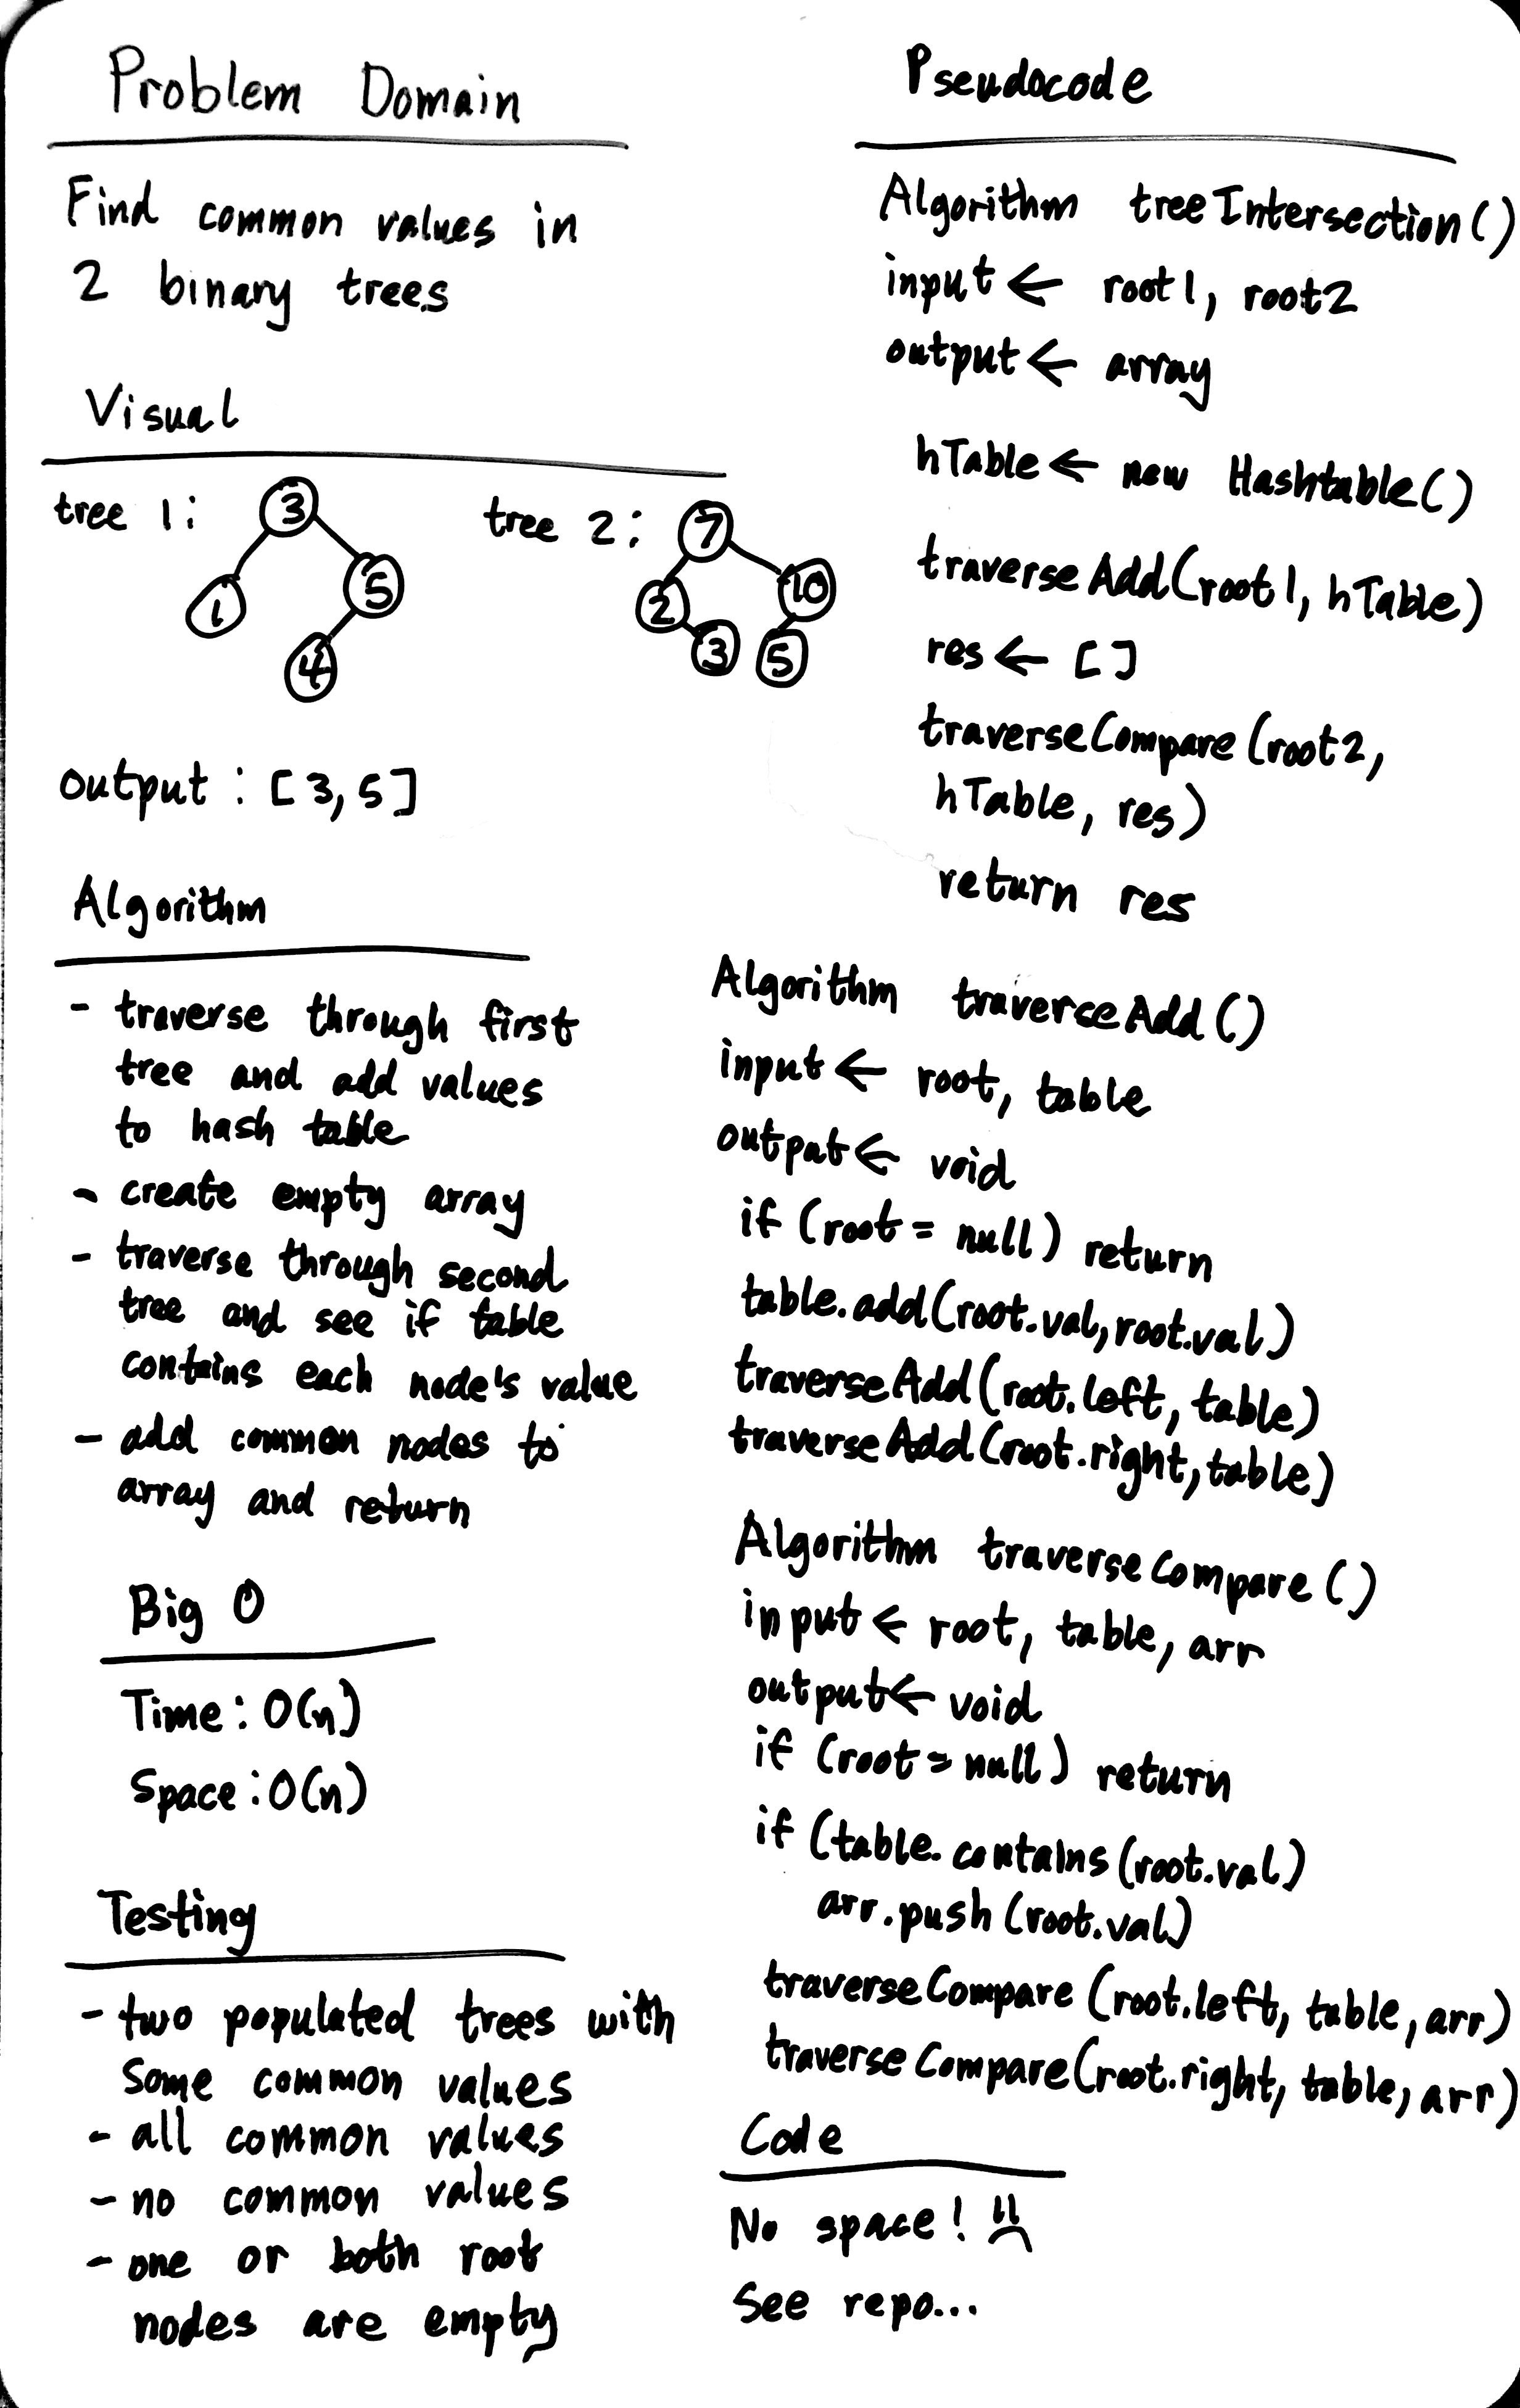 Problem Domain
Find common values in
2 binary trees
Visual
tree 1:
3
1
5
4
tree 2:
7
2
10
3
5
output : [3,5]
Algorithm
- traverse through first
tree and add values
to hash table
- create empty array
- traverse through second
tree and see if table
contains each node's value
- add common nodes to
array and return
Big O
Time: O(n)
Space: O(n)
Testing
- two populated trees with
some common values
- all common values
- no common values
- one or both root
nodes are empty
Pseudocode
Algorithm treeIntersection()
input ← root1, root2
output ← array
hTable ← new Hashtable()
traverseAdd(root1, hTable)
res ← []
traverseCompare(root2,
hTable, res)
return res
Algorithm traverseAdd()
input ← root, table
output ← void
if (root = null) return
table.add(root.val, root.val)
traverseAdd(root.left, table)
traverseAdd(root.right, table)
Algorithm traverseCompare()
input ← root, table, arr
output ← void
if (root = null) return
if (table.contains(root.val)
arr.push(root.val)
traverseCompare(root.left, table, arr)
traverseCompare(root.right, table, arr)
Code
No space!
See repo...